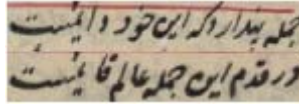 جمله پندارد که این خود دائمیست
در قدم این جمله عالم قائمیست